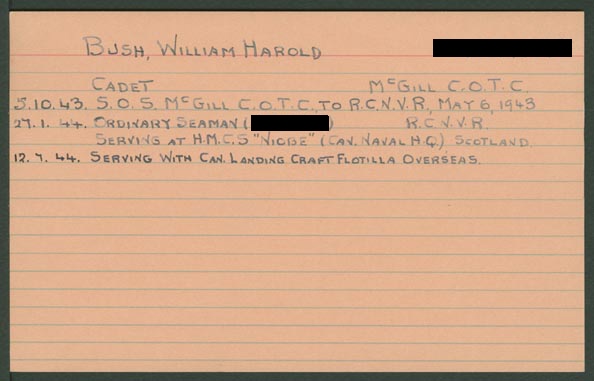 BUSH, WILLIAM HAROLD
CADET McGILL C.O.T.C.
5.10.43. S.O.S. McGILL C.O.T.C. TO R.C.N.V.R., MAY 6, 1943
27.1.44. ORDINARY SEAMAN ( ) R.C.N.V.R.
SERVING AT H.M.C.S "NIOBE" (CAN. NAVAL H.Q.) SCOTLAND
12.7.44. SERVING WITH CAN. LANDING CRAFT FLOTILLA OVERSEAS.